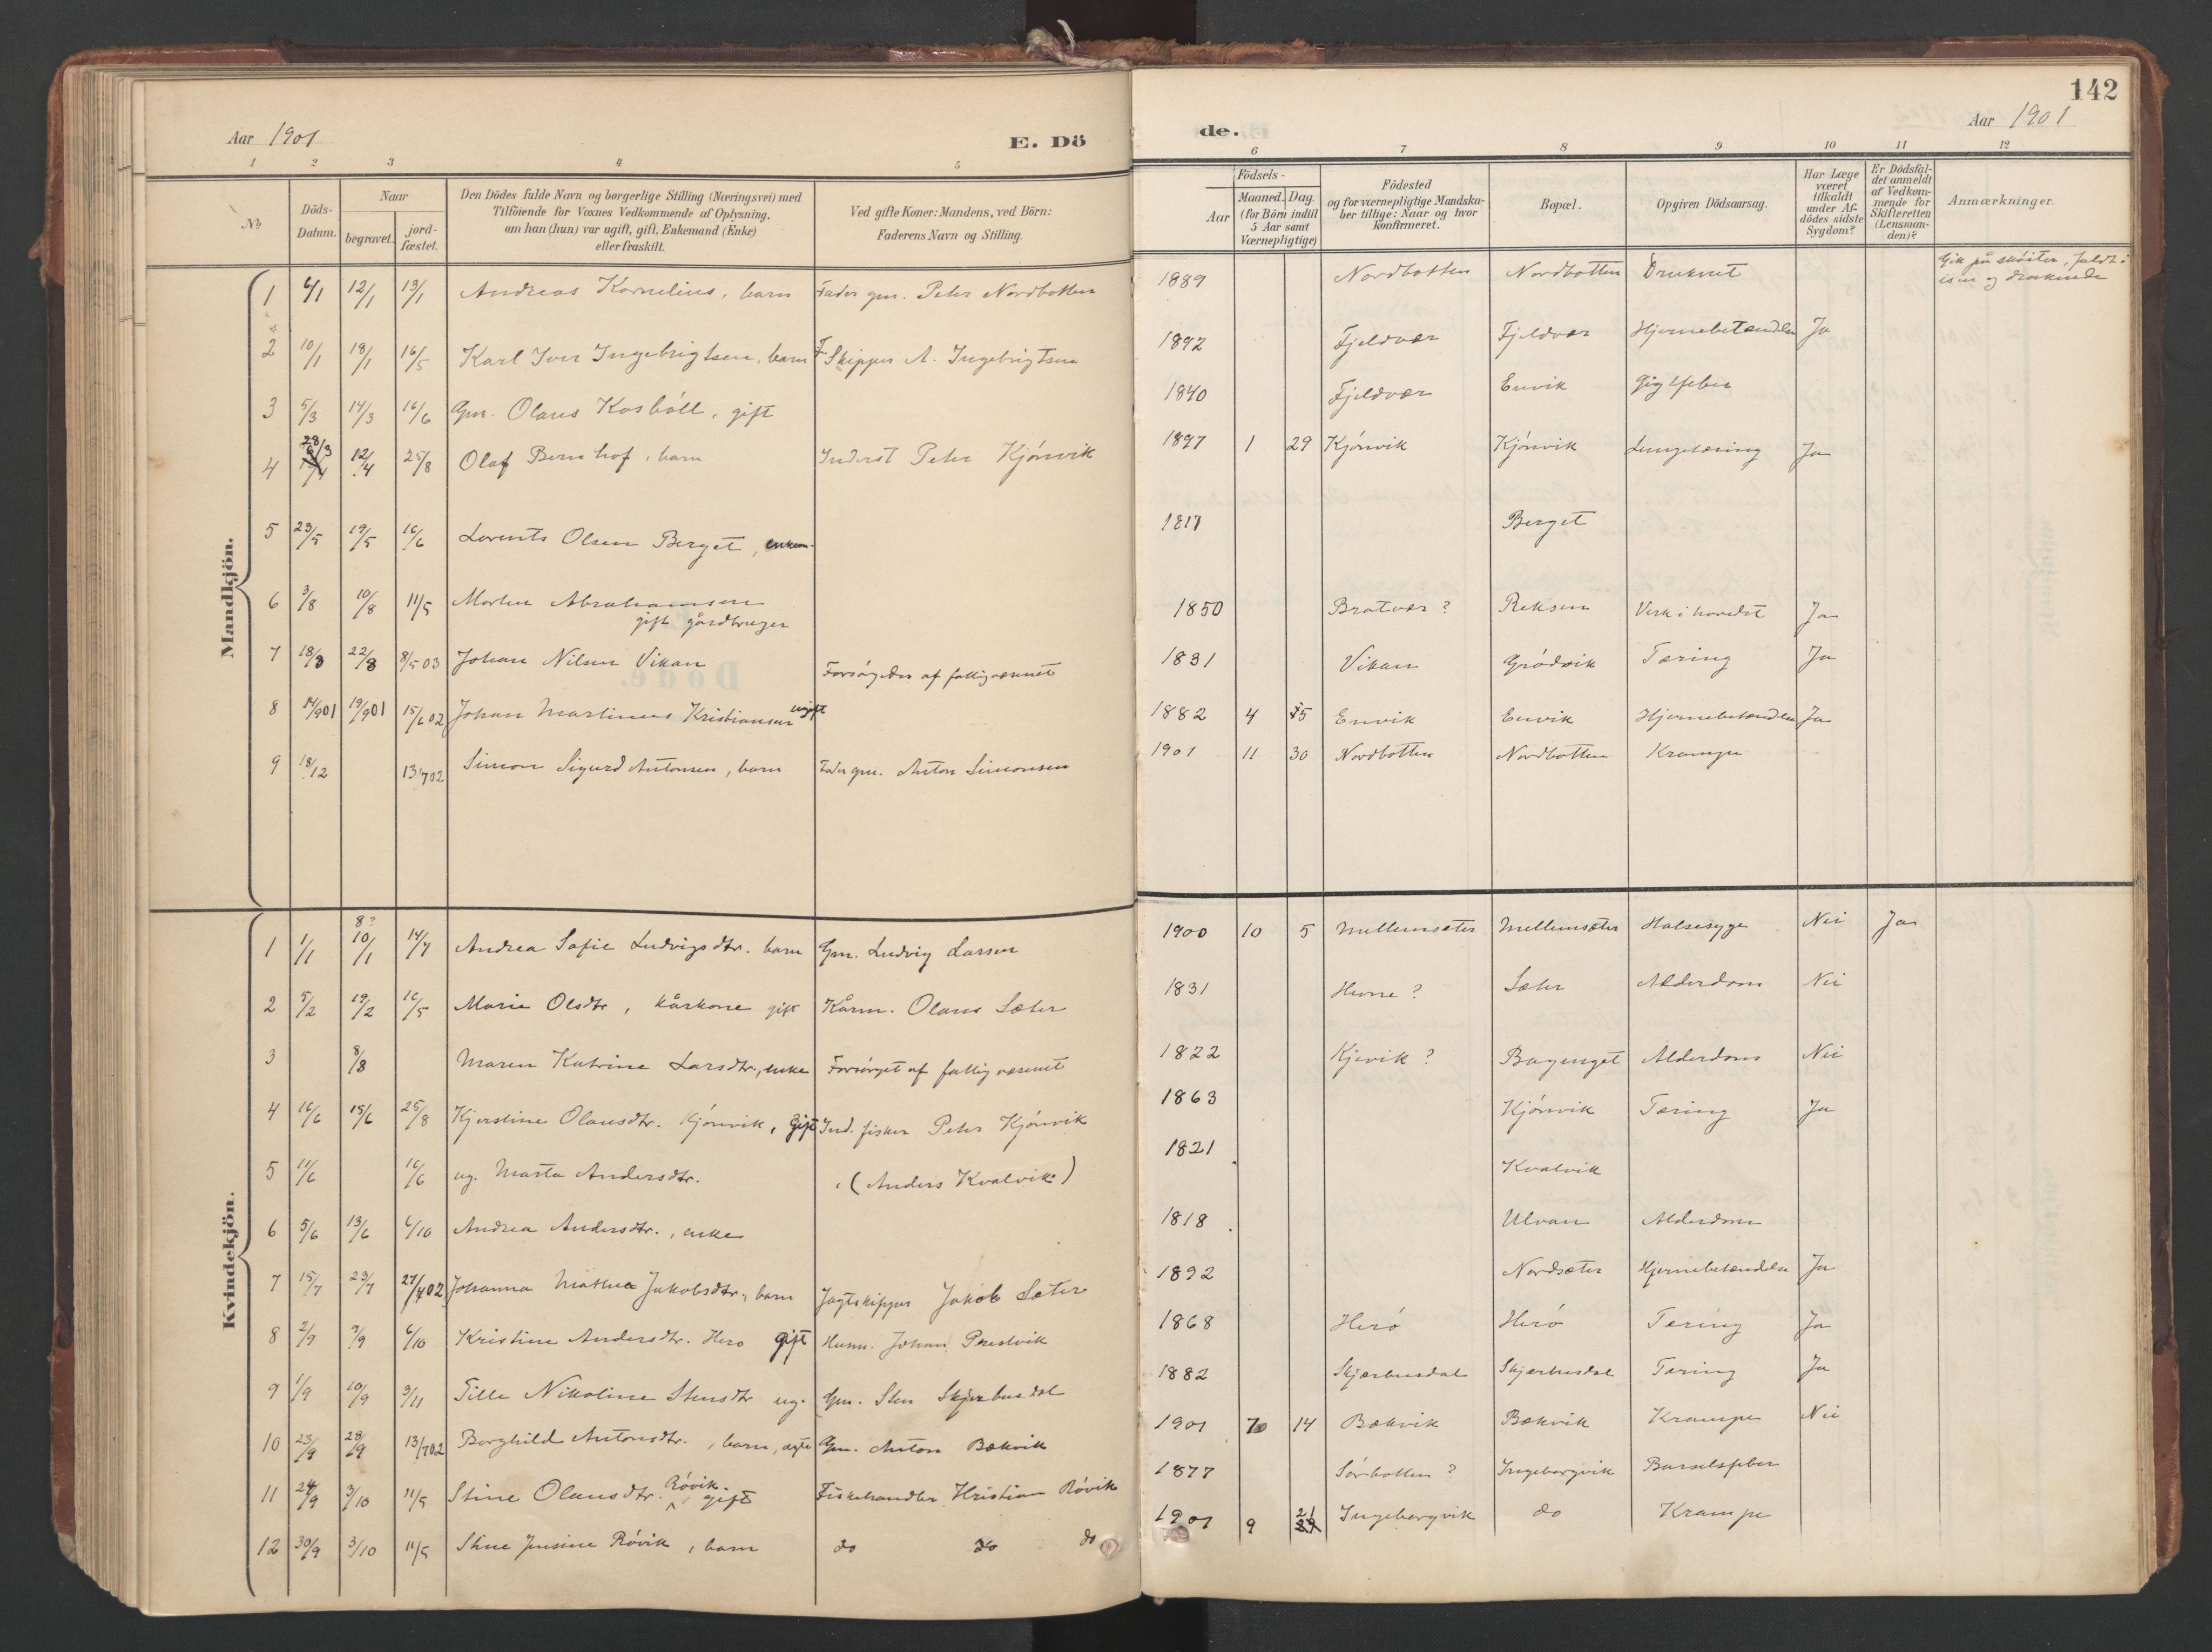 142
Aar 1901
E. Dö
de.
Aar 1901
1 2 3 4 5 6 7 8 9 10 11 12
No
Döds-Datum.
Naar
begravet.
jord-fæstet.
Den Dödes fulde Navn og borgerlige Stilling (Næringsvei) med
Tilföiende for Voxnes Vedkommende af Oplysning,
om han (hun) var ugift, gift, Enkemand (Enke)
eller fraskilt.
Ved gifte Koner: Mandens, ved Börn:
Faderens Navn og Stilling.
Födsels-
Aar
Maaned. Dag.
(for Börn indtil
5 Aar samt
Værnepligtige)
Födested
og for værnepligtige Mandska-
ber tillige: Naar og hvor
konfirmeret.
Bopæl.
Opgiven Dödsaarsag.
Har Læge
været
tilkaldt
under Af-
dödes sidste
Sygdom?
Er Dödsfal-
det anmeldt
af Vedkom-
mende for
Skifteretten
(Lensman-
den)?
Anmærkninger.
Mandkjön.
1 6/1 12/1 13/1 Andreas Kornelius, barn Fader gm. Peter Nordbotten 1889 Nordbotten Nordbotten Druknet Gik på sköiter, faldt i
isen og druknede
2 10/1 18/1 16/5 Karl Iver Ingebrigtsen, barn F. Skipper A. Ingebrigtsen 1892 Fjeldvær Fjeldvær Hjernebetændelse Ja
3 5/3 14/3 16/6 Gm. Olaus Kosböll, gift 1840 Fjeldvær Envik Gigtfeber
4 28/3 12/4 25/8 Olaf Bernhof, barn Inderst Peter Kjönvik 1897 1 29 Kjönvik Kjönvik Lungetæring Ja
5 23/5 19/5 16/6 Lorents Olsen Berget, enkem. 1817 Berget
6 3/8 10/8 11/5 Morten Abrahamsen
gift gårdbruger 1850 Bratvær? Reksen Verk i hovedet Ja
7 18/8 22/8 8/5 03 Johan Nilsen Vikan Forsörgedes af fattigvæsnet 1831 Vikan Grödvik Tæring Ja
8 14/901 19/901 15/602 Johan Martinus Kristiansen ugift 1882 4 15 Envik Envik Hjernebetændelse Ja
9 18/12 13/702 Simon Sigurd Antonsen, barn Fader gm. Anton Simonsen 1901 11 30 Nordbotten Nordbotten Krampe
Kvindekjön.
1 1/1 8? 10/1 14/7 Andrea Sofie Ludvigsdtr. barn Gm. Ludvig Larsen 1900 10 5 Mellemsæter Mellemsæter Halsesyge Nei Ja
2 5/2 19/2 16/5 Marie Olsdtr, kårkone gift Kårm. Olaus Sæter 1831 Hevne? Sæter Alderdom Nei
3 8/8 Maren Katrine Larsdtr., enke Forsörget af fattigvæsenet 1822 Kjevik? Alderdom Nei
4 16/6 15/6 25/8 Kjerstine Olausdtr. Kjönvik, gift Ind. fisker Peter Kjönvik 1863 Kjönvik Tæring Ja
5 11/6 16/6 ug. Marta Andersdtr. (Anders Kvalvik) 1821 Kvalvik
6 5/6 13/6 6/10 Andrea Andersdtr., enke 1818 Ulvan Alderdom
7 15/7 23/7 27/402 Johanna Mathea Jakobsdtr., barn Jagtskipper Jakob Sæter 1892 Nordsæter Hjernebetændelse Ja
8 2/9 9/9 6/10 Kristine Andersdtr. Herö gift Husm. Johan Prestvik 1868 Herö Herö Tæring Ja
9 1/9 10/9 3/11 Tille Nikoline Stensdtr ug. Gm. Sten Skjærbusdal 1882 Skjærbusdal Skjærbusdal Tæring Ja
10 23/9 28/9 13/702 Borghild Antonsdtr., barn, ægte Gm. Anton Bækvik 1901 7 14 Bækvik Bækvik Krampe Nei
11 24/9 3/10 11/5 Stine Olausdtr. Rövik. gift Fiskehandler Kristian Rövik 1877 Sörbotten? Ingeborgvik Barselsfeber
12 30/9 3/10 11/5 Stine Jensine Rövik, barn do do do 1901 9 21 Ingeborgvik do Krampe